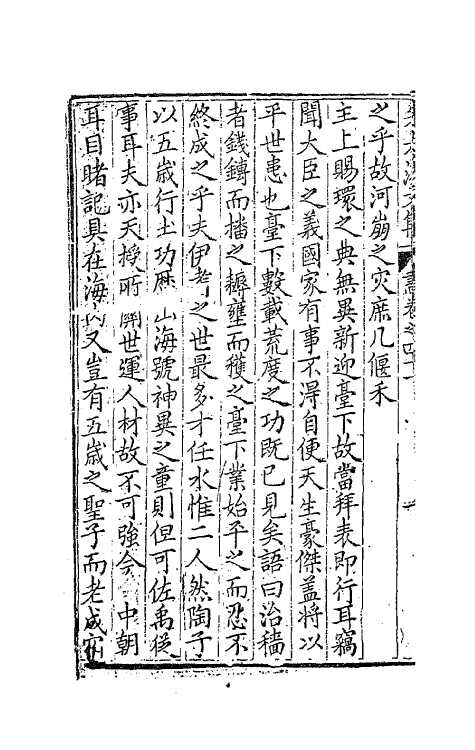 之乎故河崩之灾庶几偃禾
主上賜環之典無異新迎臺下故當拜表即行耳竊
聞大臣之義國家有事不淂自便天生豪傑盖将以
平世患也臺下數載荒度之功既已見矣語曰治穡
者錢鎛而播之耨壅而穫之臺下業始平之而忍不
終成之乎夫伊耆之世最多才任水惟二人然陶子
以五歳行土功厤 山海號神異之童則但可佐禹従
事耳夫亦天授所 開世運人材故不可強今 中朝
耳目睹記具在海内又豈有五歳之聖子而老成